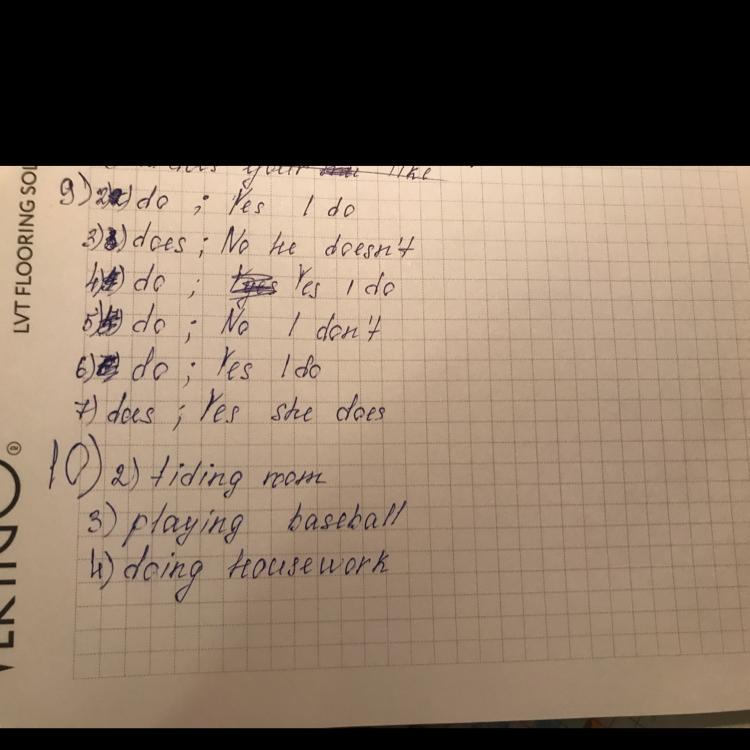 like
9) 2) do ; Yes I do
3) does ; No he doesn't
4) do ; Yes I do
5) do ; No I don't
6) do ; Yes I do
7) does ; Yes she does
10) 2) tiding room
3) playing baseball
4) doing housework
LVT FLOORING SOL